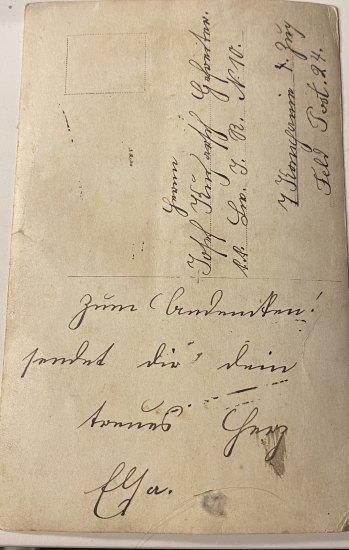 Herrn
Josef Gefreiter.
k.k. Lw. I. R. N. 10.
7 Kompanie 1. Zug
Feld Post. 24.
Zum Andenken!
sendet dir dein
treues Herz
Elsa.